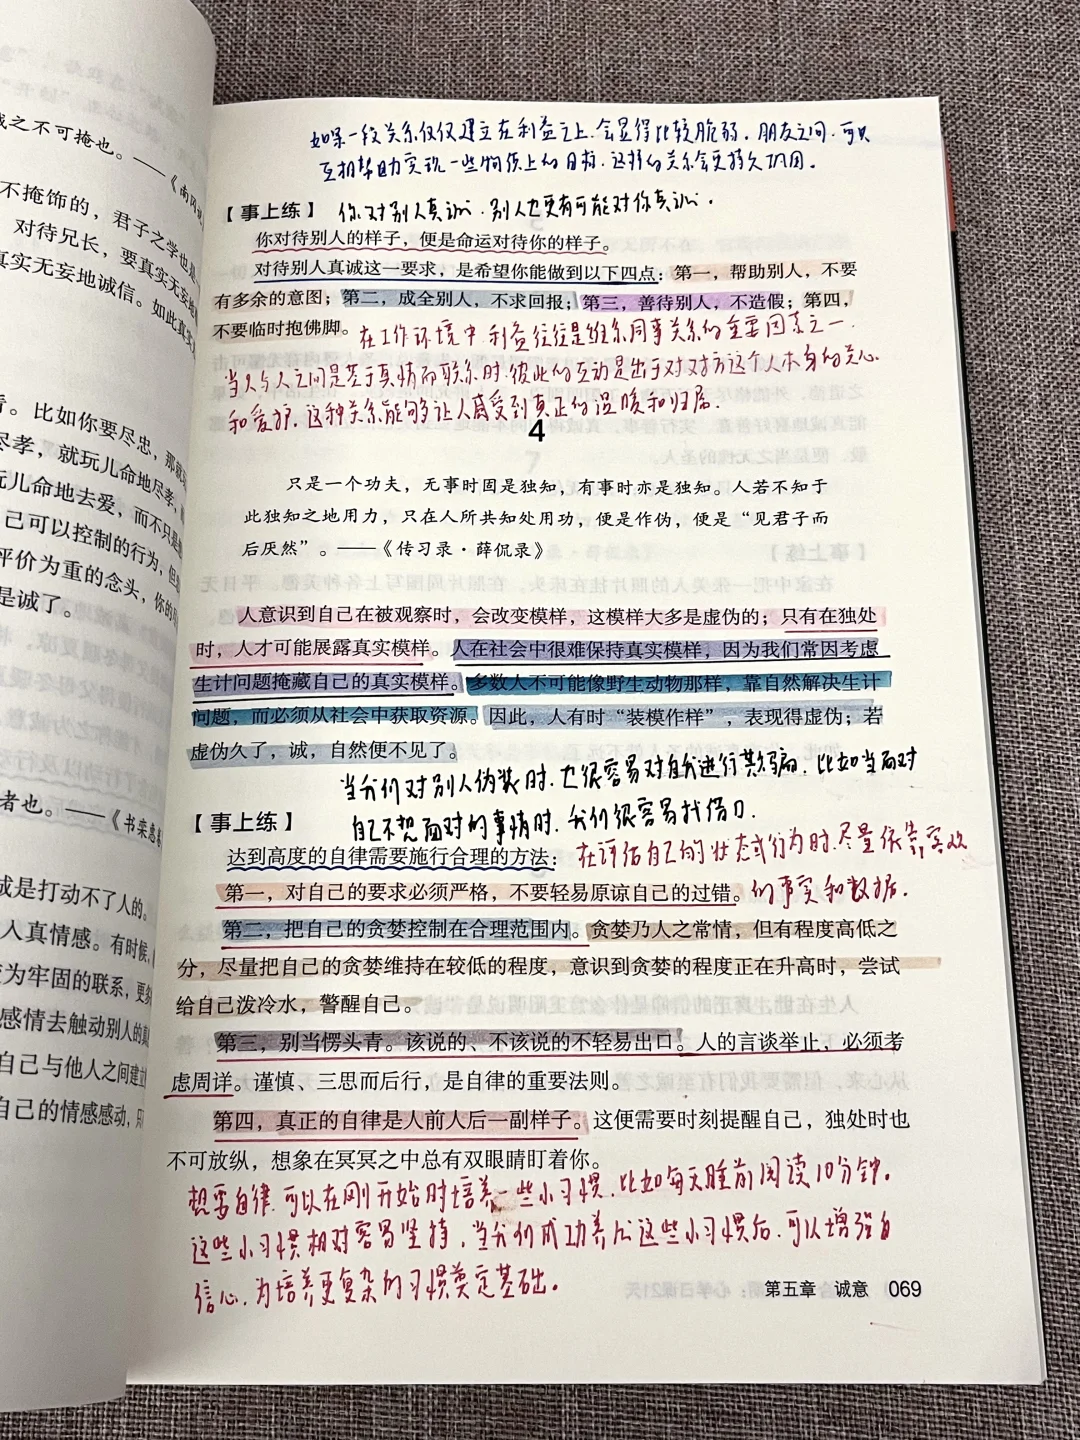 成之不可掩也。——《南冈说
不掩饰的，君子之学也是
对待兄长，要真实无妄地
真实无妄地诚信。如此真实
。比如你要尽忠，那就
尽孝，就玩儿命地尽孝，
玩儿命地去爱，而不只是
己可以控制的行为，但
评价为重的念头，你的
是诚了。
者也。——《书宋惠
成是打动不了人的。
人真情感。有时候，
变为牢固的联系，更
感情去触动别人的真
自己与他人之间建立
自己的情感感动，只
如果一段关系仅仅建立在利益之上，会显得比较脆弱。朋友之间，可以
互相帮助实现一些物质上的目标，这样的关系会更持久巩固。
【事上练】 你对别人真诚，别人也更有可能对你真诚。
你对待别人的样子，便是命运对待你的样子。
对待别人真诚这一要求，是希望你能做到以下四点：第一，帮助别人，不要
有多余的意图；第二，成全别人，不求回报；第三，善待别人，不造假；第四，
不要临时抱佛脚。 在工作环境中，利益往往是维系同事关系的重要因素之一。
当人与人之间是基于真情而联系时，彼此的互动是出于对对方这个人本身的关心
和爱护，这种关系能够让人感受到真正的温暖和归属。
4
只是一个功夫，无事时固是独知，有事时亦是独知。人若不知于
此独知之地用力，只在人所共知处用功，便是作伪，便是“见君子而
后厌然”。——《传习录·薛侃录》
人意识到自己在被观察时，会改变模样，这模样大多是虚伪的；只有在独处
时，人才可能展露真实模样。人在社会中很难保持真实模样，因为我们常因考虑
生计问题掩藏自己的真实模样。多数人不可能像野生动物那样，靠自然解决生计
问题，而必须从社会中获取资源。因此，人有时“装模作样”，表现得虚伪；若
虚伪久了，诚，自然便不见了。
当我们对别人伪装时，也很容易对自我进行欺骗，比如当面对
自己不想面对的事情时，我们很容易找借口。
【事上练】
达到高度的自律需要施行合理的方法： 在评估自己的状态或行为时，尽量依靠客观
第一，对自己的要求必须严格，不要轻易原谅自己的过错。 的事实和数据。
第二，把自己的贪婪控制在合理范围内。贪婪乃人之常情，但有程度高低之
分，尽量把自己的贪婪维持在较低的程度，意识到贪婪的程度正在升高时，尝试
给自己泼冷水，警醒自己。
第三，别当愣头青。该说的、不该说的不轻易出口。人的言谈举止，必须考
虑周详。谨慎、三思而后行，是自律的重要法则。
第四，真正的自律是人前人后一副样子。这便需要时刻提醒自己，独处时也
不可放纵，想象在冥冥之中总有双眼睛盯着你。
想要自律，可以在刚开始时培养一些小习惯，比如每天睡前阅读10分钟。
这些小习惯相对容易坚持，当我们成功养成这些小习惯后，可以增强自
信心，为培养更复杂的习惯奠定基础。
第五章 诚意 069